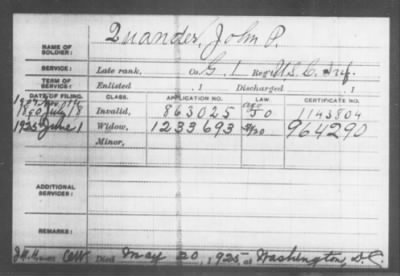 NAME OF SOLDIER: Quander, John P.
SERVICE: Late rank, Co. G, 1 Reg't U.S.C. Inf.
TERM OF SERVICE: Enlisted , 1 Discharged , 1
DATE OF FILING. CLASS. APPLICATION NO. LAW. CERTIFICATE NO.
1890 July 18 Invalid, 863025 1143804
1925 June 1 Widow, 1233693 964290
Minor,
ADDITIONAL SERVICES:
REMARKS:
Died May 20, 1925 at Washington, D.C.